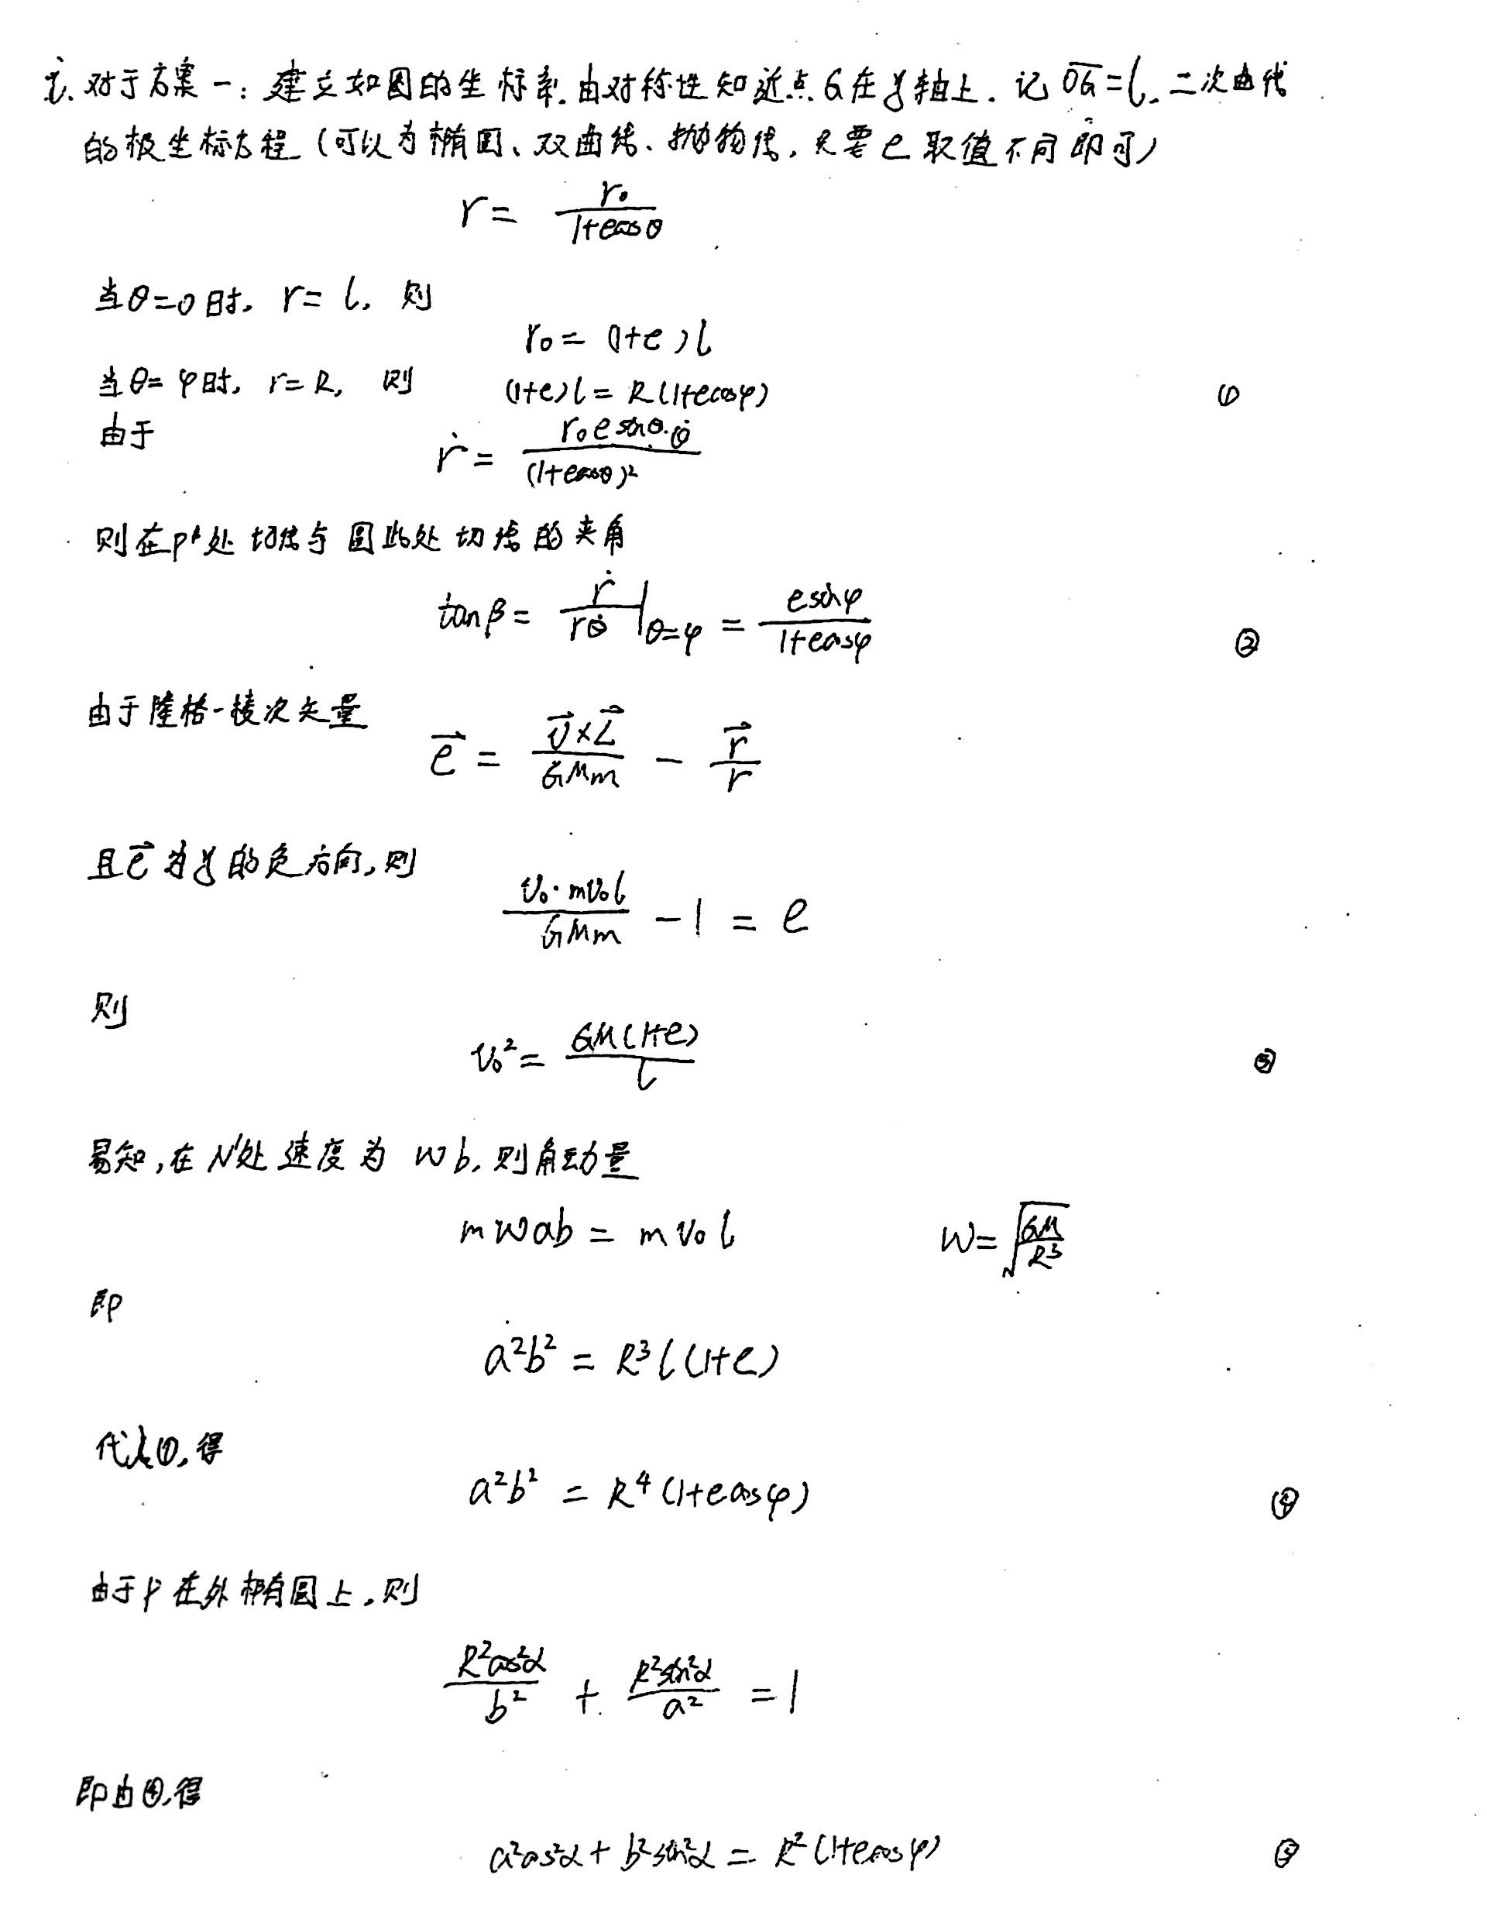 i. 对于方案一：建立如图的坐标系.由对称性知近点G在y轴上.记 \overline{OG}=l. 二次曲线
的极坐标方程（可以为椭圆、双曲线、抛物线，只要e取值不同即可）
r = \frac{r_0}{1+e\cos\theta}
当θ=0时. r=l. 则
r_0 = (1+e)l
当θ=φ时, r=R, 则 (1+e)l = R(1+e\cosφ) ①
由于
\dot{r} = \frac{r_0 e\sinθ·\dot{θ}}{(1+e\cosθ)^2}
则在P'处切线与圆此处切线的夹角
\tanβ = \frac{\dot{r}}{r\dot{θ}}|_{θ=φ} = \frac{e\sinφ}{1+e\cosφ} ②
由于隆格-楞次矢量
\vec{e} = \frac{\vec{v}×\vec{L}}{GMm} - \frac{\vec{r}}{r}
且\vec{e}为y的负方向,则
\frac{v_0·mv_0l}{GMm} - 1 = e
则
v_0^2 = \frac{GM(1+e)}{l} ③
易知,在N'处速度为 ωb,则角动量
mωab = mv_0l ω=\sqrt{\frac{GM}{R^3}}
即
a^2b^2 = R^3l(1+e)
代入①,得
a^2b^2 = R^4(1+e\cosφ) ④
由于P在外椭圆上,则
\frac{R^2\cos^2α}{b^2} + \frac{R^2\sin^2α}{a^2} = 1
即由④,得
a^2\cos^2α + b^2\sin^2α = R^2(1+e\cosφ) ⑤